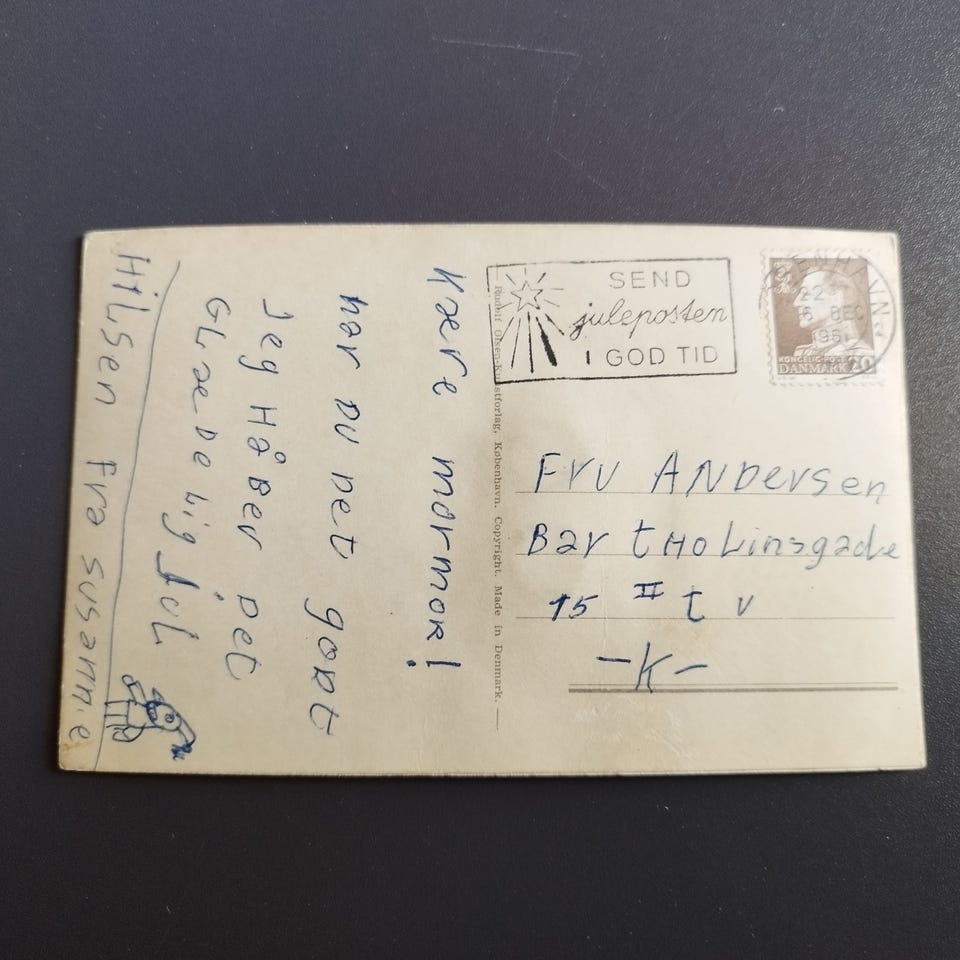 Kære mormor!
har du det godt
Jeg Håber det
GLædelig Jul
HiLsen Fra Susanne
Rudolf Olsen-Kunstforlag, København. Copyright. Made in Denmark.
SEND
juleposten
I GOD TID
22
6 DEC
1961
KONGELIG-POST
DANMARK 20
Fru ANDersen
BartHoLinsgade
15 II tv
-K-